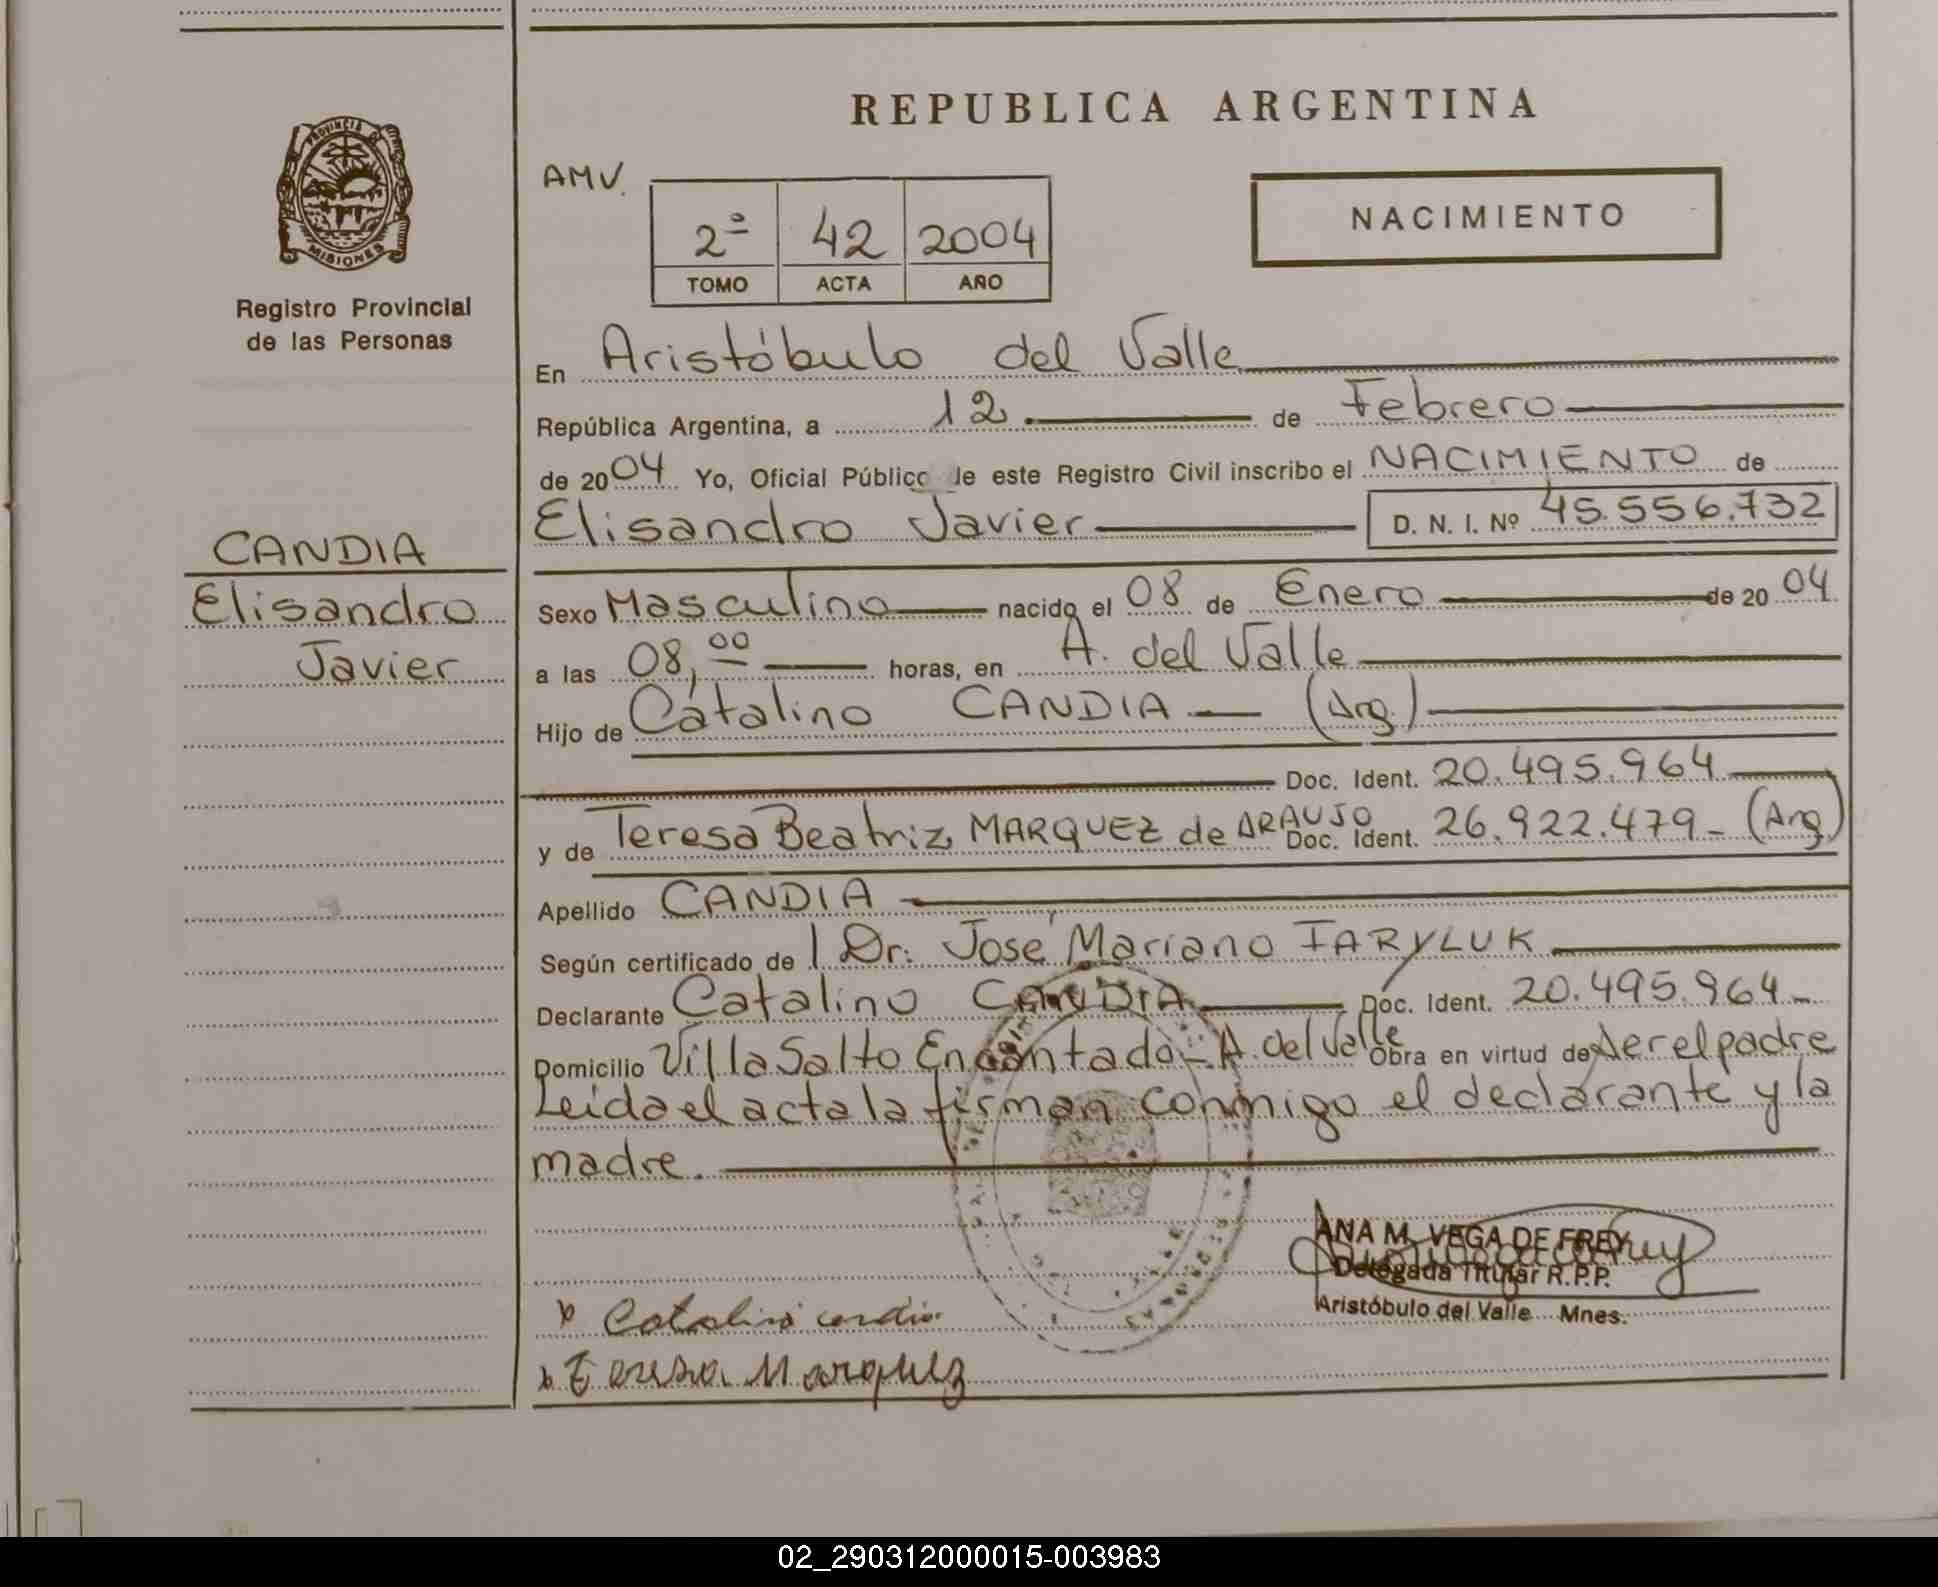 REPUBLICA ARGENTINA
PROVINCIA DE
MISIONES
Registro Provincial
de las Personas
AMV.
2º 42 2004
TOMO ACTA AÑO
NACIMIENTO
En Aristóbulo del Valle
República Argentina, a 12 de Febrero
de 2004 Yo, Oficial Público de este Registro Civil inscribo el NACIMIENTO de
Elisandro Javier D. N. I. Nº 45.556.732
CANDIA
Elisandro
Javier
Sexo Masculino nacido el 08 de Enero de 2004
a las 08,00 horas, en A. del Valle
Hijo de Catalino CANDIA (Arg.)
Doc. Ident. 20.495.964
y de Teresa Beatriz MARQUEZ de ARAUJO Doc. Ident. 26.922.479- (Arg)
Apellido CANDIA
Según certificado de Dr. José Mariano IARYLUK
Declarante Catalino CANDIA Doc. Ident. 20.495.964-
Domicilio Villa Salto Encantado - A. del Valle Obra en virtud de ser el padre
Leida el acta la firman conmigo el declarante y la
madre.
ANA M. VEGA DE FREY
Delegada Titular R.P.P.
Aristóbulo del Valle Mnes.
x Catalino candia
x Teresa Marquez
02_290312000015-003983